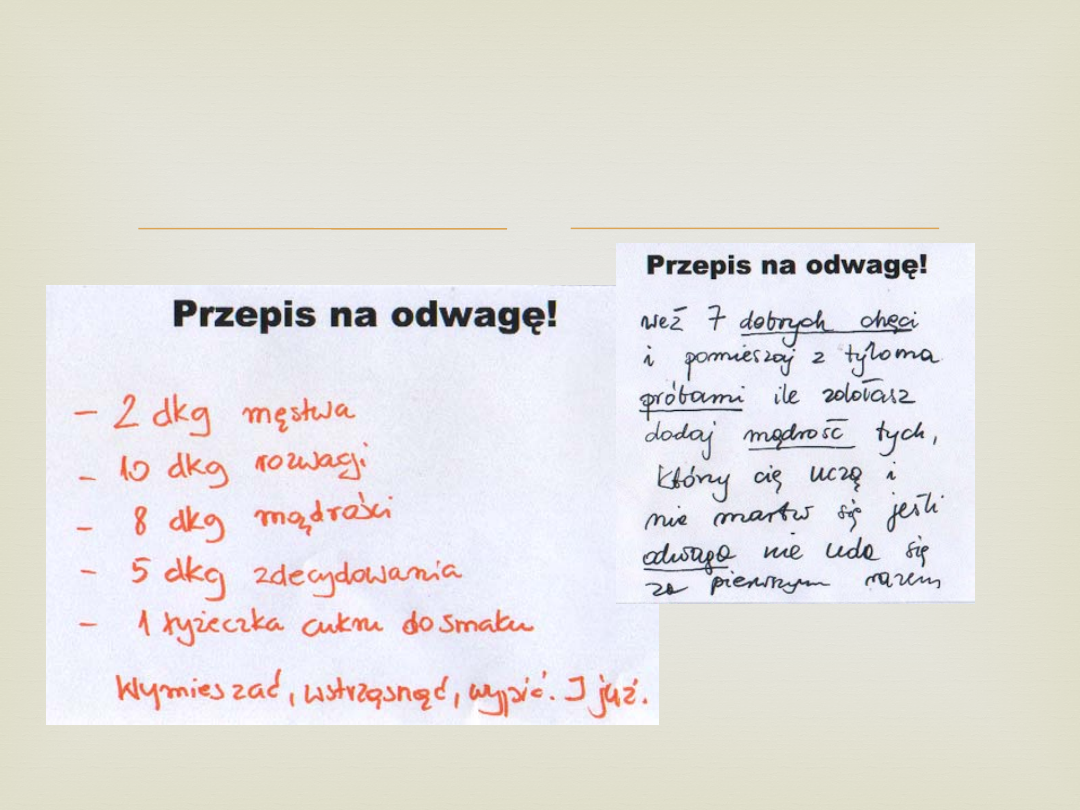 Przepis na odwagę!
- 2 dkg męstwa
- 10 dkg rozwagi
- 8 dkg mądrości
- 5 dkg zdecydowania
- 1 łyżeczka cukru do smaku
Wymieszać, wstrząsnąć, wypić. I już.
Przepis na odwagę!
weź 7 dobrych chęci
i pomieszaj z tyloma
próbami ile zdołasz
dodaj mądrość tych,
który cię uczą i
nie martw się jeśli
odwaga nie uda się
za pierwszym razem